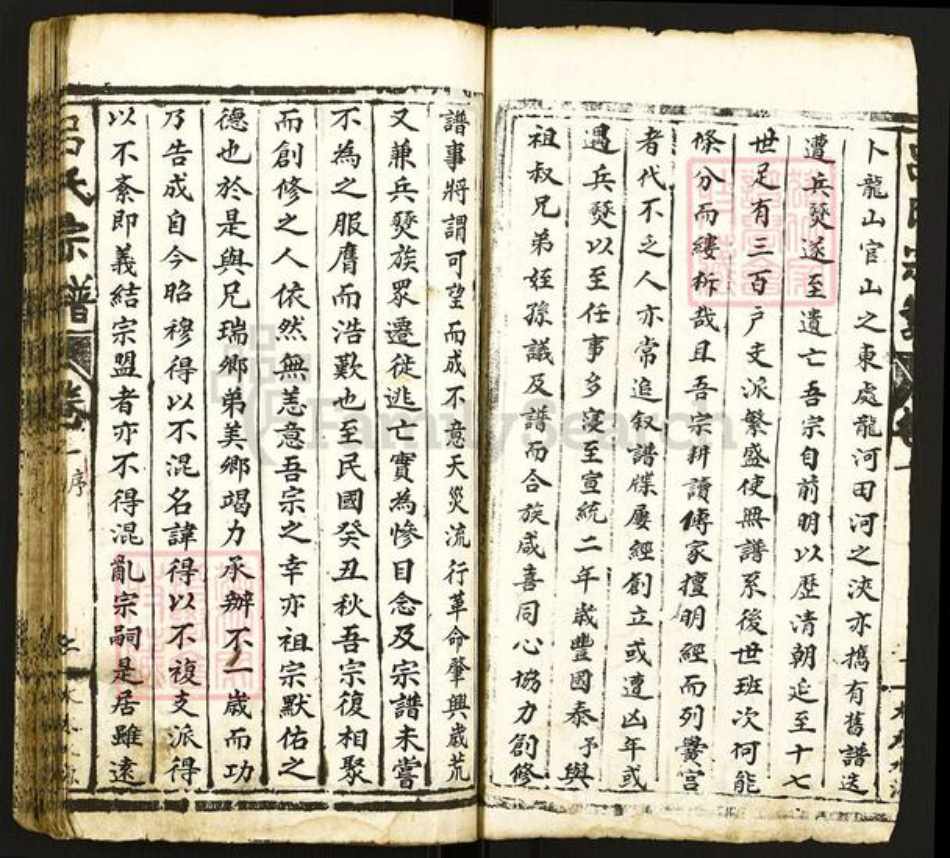 卜龍山官山之東處龍河田河之浹亦攜有舊譜迭
遭兵燹遂至遺亡吾宗自前明以歷清朝延至十七
世足有三百户支派繁盛使無譜系後世班次何能
條分而縷析哉且吾宗耕讀傳家擅明經而列黌宫
者代不乏人亦常追叙譜牒屢經創立或遭凶年或
遇兵燹以至任事多寝至宣統二年歲豐國泰予與
祖叔兄弟姪孫議及譜而合族咸喜同心協力創修
譜事將謂可望而成不意天災流行革命肇興歲荒
又兼兵燹族眾遷徙逃亡實為慘目念及宗譜未嘗
不為之服膺而浩歎也至民國癸丑秋吾宗復相聚
而創修之人依然無恙意吾宗之幸亦祖宗默佑之
德也於是與兄瑞鄉弟美鄉竭力承辦不一歲而功
乃告成自今昭穆得以不混名諱得以不複支派得
以不紊即義結宗盟者亦不得混亂宗嗣是居雖遠
呂氏宗譜 卷一 序
FamilySearch